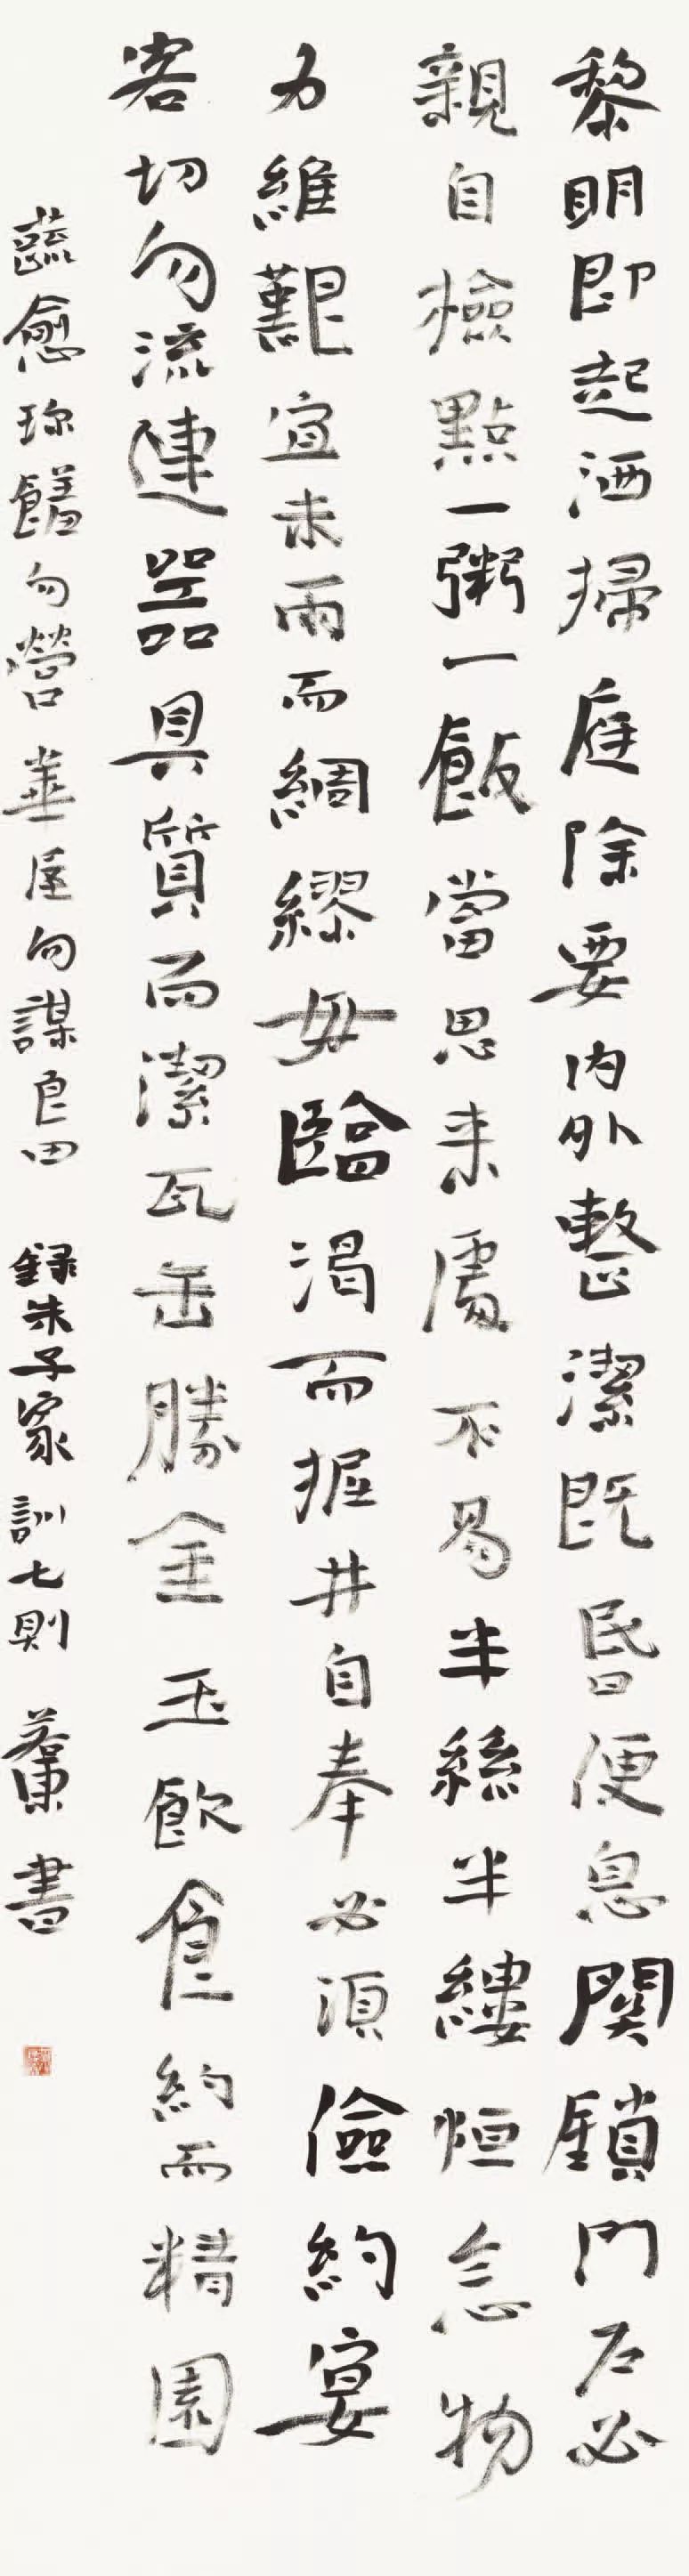 黎明即起洒掃庭除要内外整潔既昏便息関鎖門户必
親自檢點一粥一飯當思来處不易半絲半縷恒念物
力維艱宜未雨而綢繆毋臨渴而掘井自奉必須儉約宴
客切勿流連器具質而潔瓦缶勝金玉飲食約而精園
蔬愈珍饈勿營華屋勿謀良田 録朱子家訓七則 書